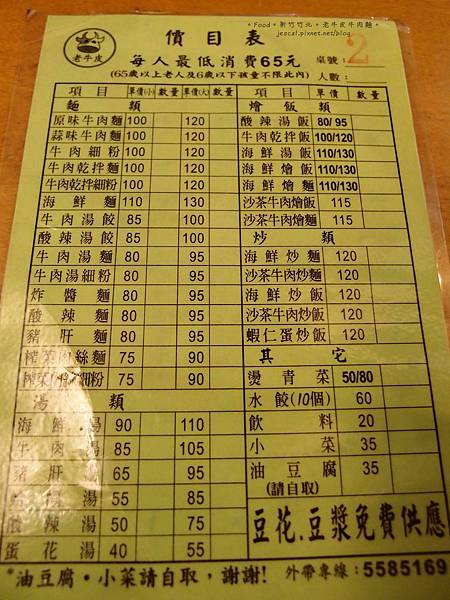 。Food。新竹竹北。老牛皮牛肉麵。
jescal.pixnet.net/blog
老牛皮
價目表
每人最低消費65元
(65歲以上老人及6歲以下孩童不限此內)
桌號: 2
人數:
項目 單價(小) 數量 單價(大) 數量
麵類
原味牛肉麵 100 120
蒜味牛肉麵 100 120
牛肉細粉 100 120
牛肉乾拌麵 100 120
牛肉乾拌細粉 100 120
海鮮麵 110 130
牛肉湯餃 85 100
酸辣湯餃 85 100
牛肉湯麵 80 95
牛肉湯細粉 80 95
炸醬麵 80 95
酸辣麵 80 95
豬肝麵 80 95
榨菜肉絲麵 75 90
榨菜肉絲細粉 75 90
湯類
海鮮湯 90 110
牛肉湯 85 105
豬肝湯 65 95
湯 55 85
酸辣湯 50 75
蛋花湯 40 55
項目 單價 數量
燴飯類
酸辣湯飯 80/95
牛肉乾拌飯 100/120
海鮮湯飯 110/130
海鮮燴飯 110/130
海鮮燴麵 110/130
沙茶牛肉燴飯 115
沙茶牛肉燴麵 115
炒類
海鮮炒麵 120
沙茶牛肉炒麵 120
海鮮炒飯 120
沙茶牛肉炒飯 120
蝦仁蛋炒飯 120
其它
燙青菜 50/80
水餃(10個) 60
飲料 20
小菜 35
油豆腐 35
(請自取)
豆花.豆漿免費供應
*油豆腐・小菜請自取,謝謝! 外帶專線:5585169